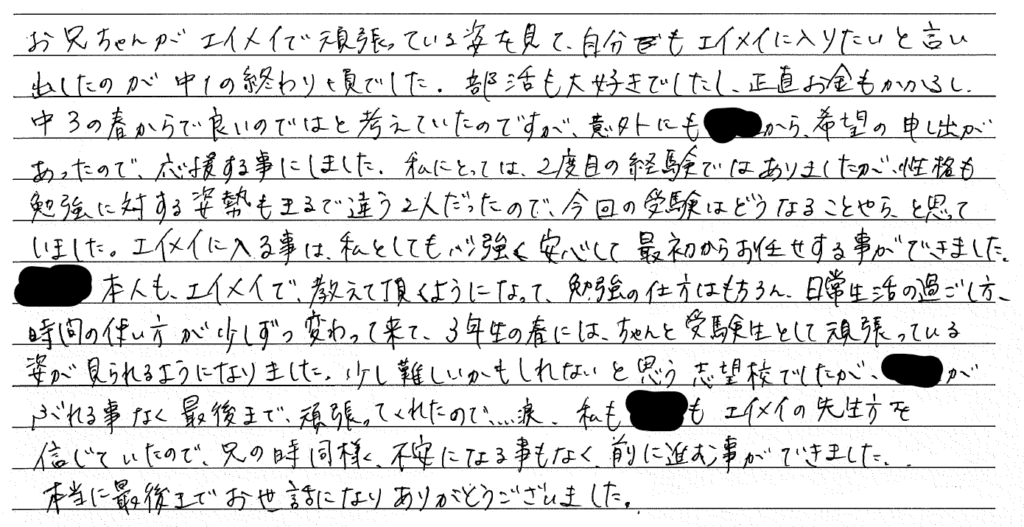 お兄ちゃんがエイメイで頑張っている姿を見て、自分でもエイメイに入りたいと言い
出したのが中1の終わり頃でした。部活も大好きでしたし、正直お金もかかるし、
中3の春からで良いのではと考えていたのですが、意外にも から、希望の申し出が
あったので、応援する事にしました。私にとっては、2度目の経験ではありましたが、性格も
勉強に対する姿勢もまるで違う2人だったので、今回の受験はどうなることやら、と思って
いました。エイメイに入る事は、私としても心強く安心して最初からお任せする事ができました。
本人も、エイメイで、教えて頂くようになって、勉強の仕方はもちろん、日常生活の過ごし方、
時間の使い方が少しずつ変わって来て、3年生の春には、ちゃんと受験生として頑張っている
姿が見られるようになりました。少し難しいかもしれないと思う志望校でしたが、 が
ぶれる事なく最後まで、頑張ってくれたので、...涙、私も もエイメイの先生方を
信じていたので、兄の時同様く、不安になる事もなく、前に進む事ができました、、
本当に最後までお世話になりありがとうございました。